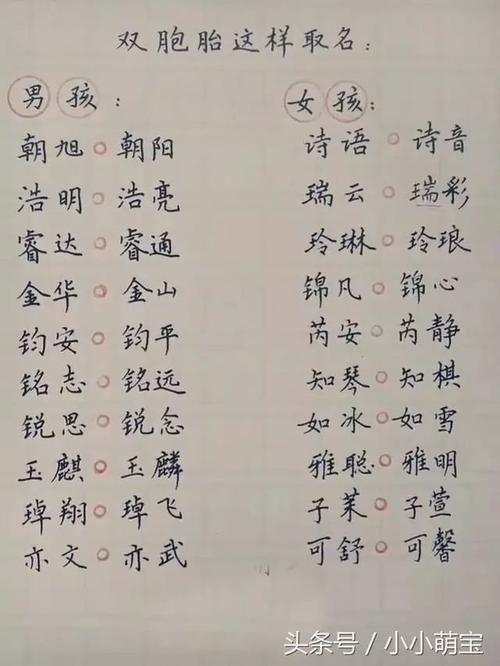 双胞胎这样取名：
男孩：
朝旭。朝阳
浩明。浩亮
睿达。睿通
金华。金山
钧安。钧平
铭志。铭远
锐思。锐念
玉麒。玉麟
琸翔。琸飞
亦文。亦武
女孩：
诗语。诗音
瑞云。瑞彩
玲琳。玲琅
锦凡。锦心
芮安。芮静
知琴。知棋
如冰。如雪
雅聪。雅明
子茉。子萱
可舒。可馨
头条号／小小萌宝